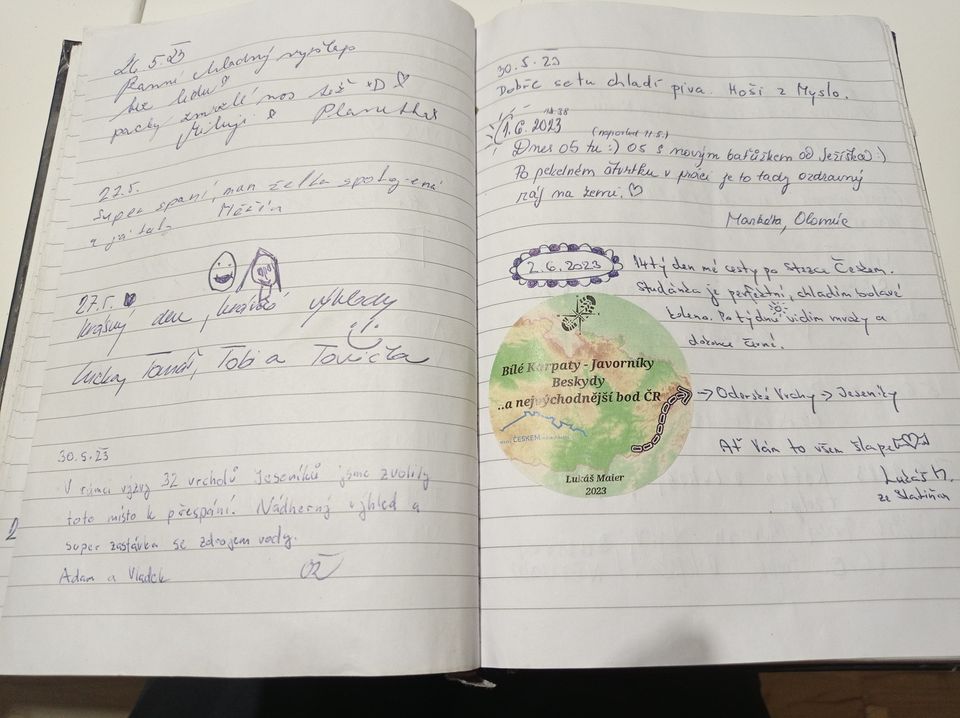 26.5.23
Ranní chladný
bez ledu
packy zmrzlé nos též :D ♡
Miluji
27.5.
super spaní, man
27.5. ♥
krásný den, krásné výhledy
Lucka, Tomáš, Tobi a
30.5.23
V rámci výzvy 32 vrcholů Jeseníků jsme zvolily
toto místo k přespání. Nádherný výhled a
super zastávka se zdrojem vody.
Adam a Vladek
2
30.5.23
Dobře se tu chladí piva. Hoši z Myslo.
1.6.2023
(naposled 11.5.)
Dnes 05 tu :) 05 s novým baťůžkem od Ježíška :)
Po pekelném čtvrtku v práci je to tady ozdravný
ráj na zemi. ♡
Markéta, Olomouc
2.6.2023
14tý den mé cesty po Stezce Českem.
Studánka je perfektní, chladím bolavé
kolena. Po týdnu vidím mraky a
dokonce černé.
Bílé Karpaty - Javorníky
Beskydy
..a nejvýchodnější bod ČR
ČESKEM
Lukáš Maier
2023
→ Oderské Vrchy → Jeseníky
Ať Vám to všem šlape
Lukáš M.
ze Slatiňan